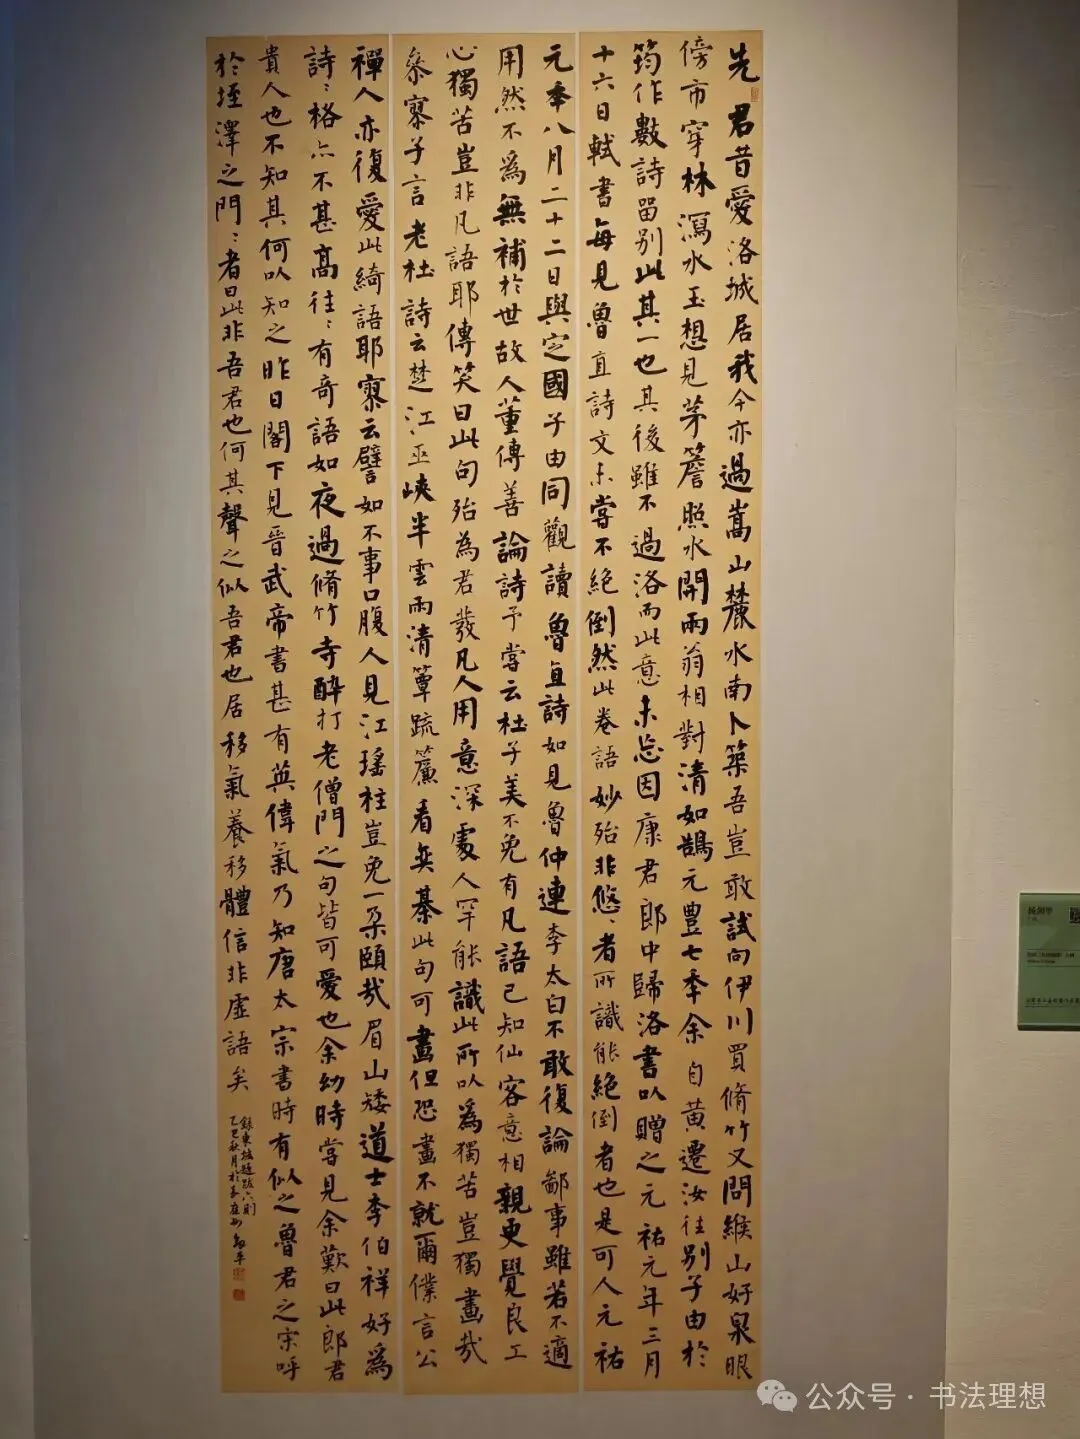 先君昔愛洛城居我今亦過嵩山麓水南卜築吾豈敢試向伊川買脩竹又問緱山好泉眼
傍市穿林瀉水玉想見茅簷照水開兩翁相對清如鵠元豐七年余自黃遷汝往別子由於
筠作數詩留別此其一也其後雖不過洛而此意未忘因康君郎中歸洛書以贈之元祐元年三月
十六日軾書每見魯直詩文未嘗不絕倒然此卷語妙殆非悠、者所識能絕倒者也是可人元祐
元年八月二十二日與定國子由同觀讀魯直詩如見魯仲連李太白不敢復論鄙事雖若不適
用然不為無補於世故人董傳善論詩予嘗云杜子美不免有凡語已知仙客意相親更覺良工
心獨苦豈非凡語耶傳笑曰此句殆為君發凡人用意深處人罕能識此所以為獨苦豈獨畫哉
參寥子言老杜詩云楚江巫峽半雲雨清簟疏簾看弈棊此句可畫但恐畫不就爾僕言公
禪人亦復愛此綺語耶寥云譬如不事口腹人見江瑤柱豈免一朵頤哉眉山矮道士李伯祥好為
詩：格亦不甚高往：有奇語如夜過脩竹寺醉打老僧門之句皆可愛也余幼時嘗見余歎曰此郎君
貴人也不知其何以知之昨日閣下見晉武帝書甚有英偉氣乃知唐太宗書時有似之魯君之宋呼
於垤澤之門：者曰此非吾君也何其聲之似吾君也居移氣養移體信非虛語矣
錄東坡題跋六則
乙巳秋月於
公众号·书法理想